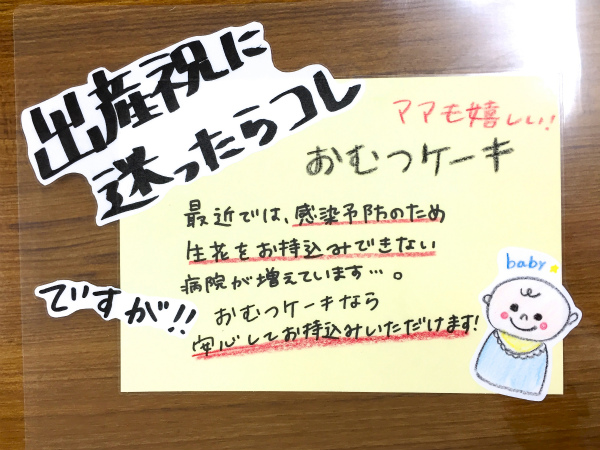 出産祝に
迷ったらコレ
ママも嬉しい!
おむつケーキ
最近では、感染予防のため
生花をお持込みできない
病院が増えています…。
ですが!!
おむつケーキなら
安心してお持込みいただけます!
baby